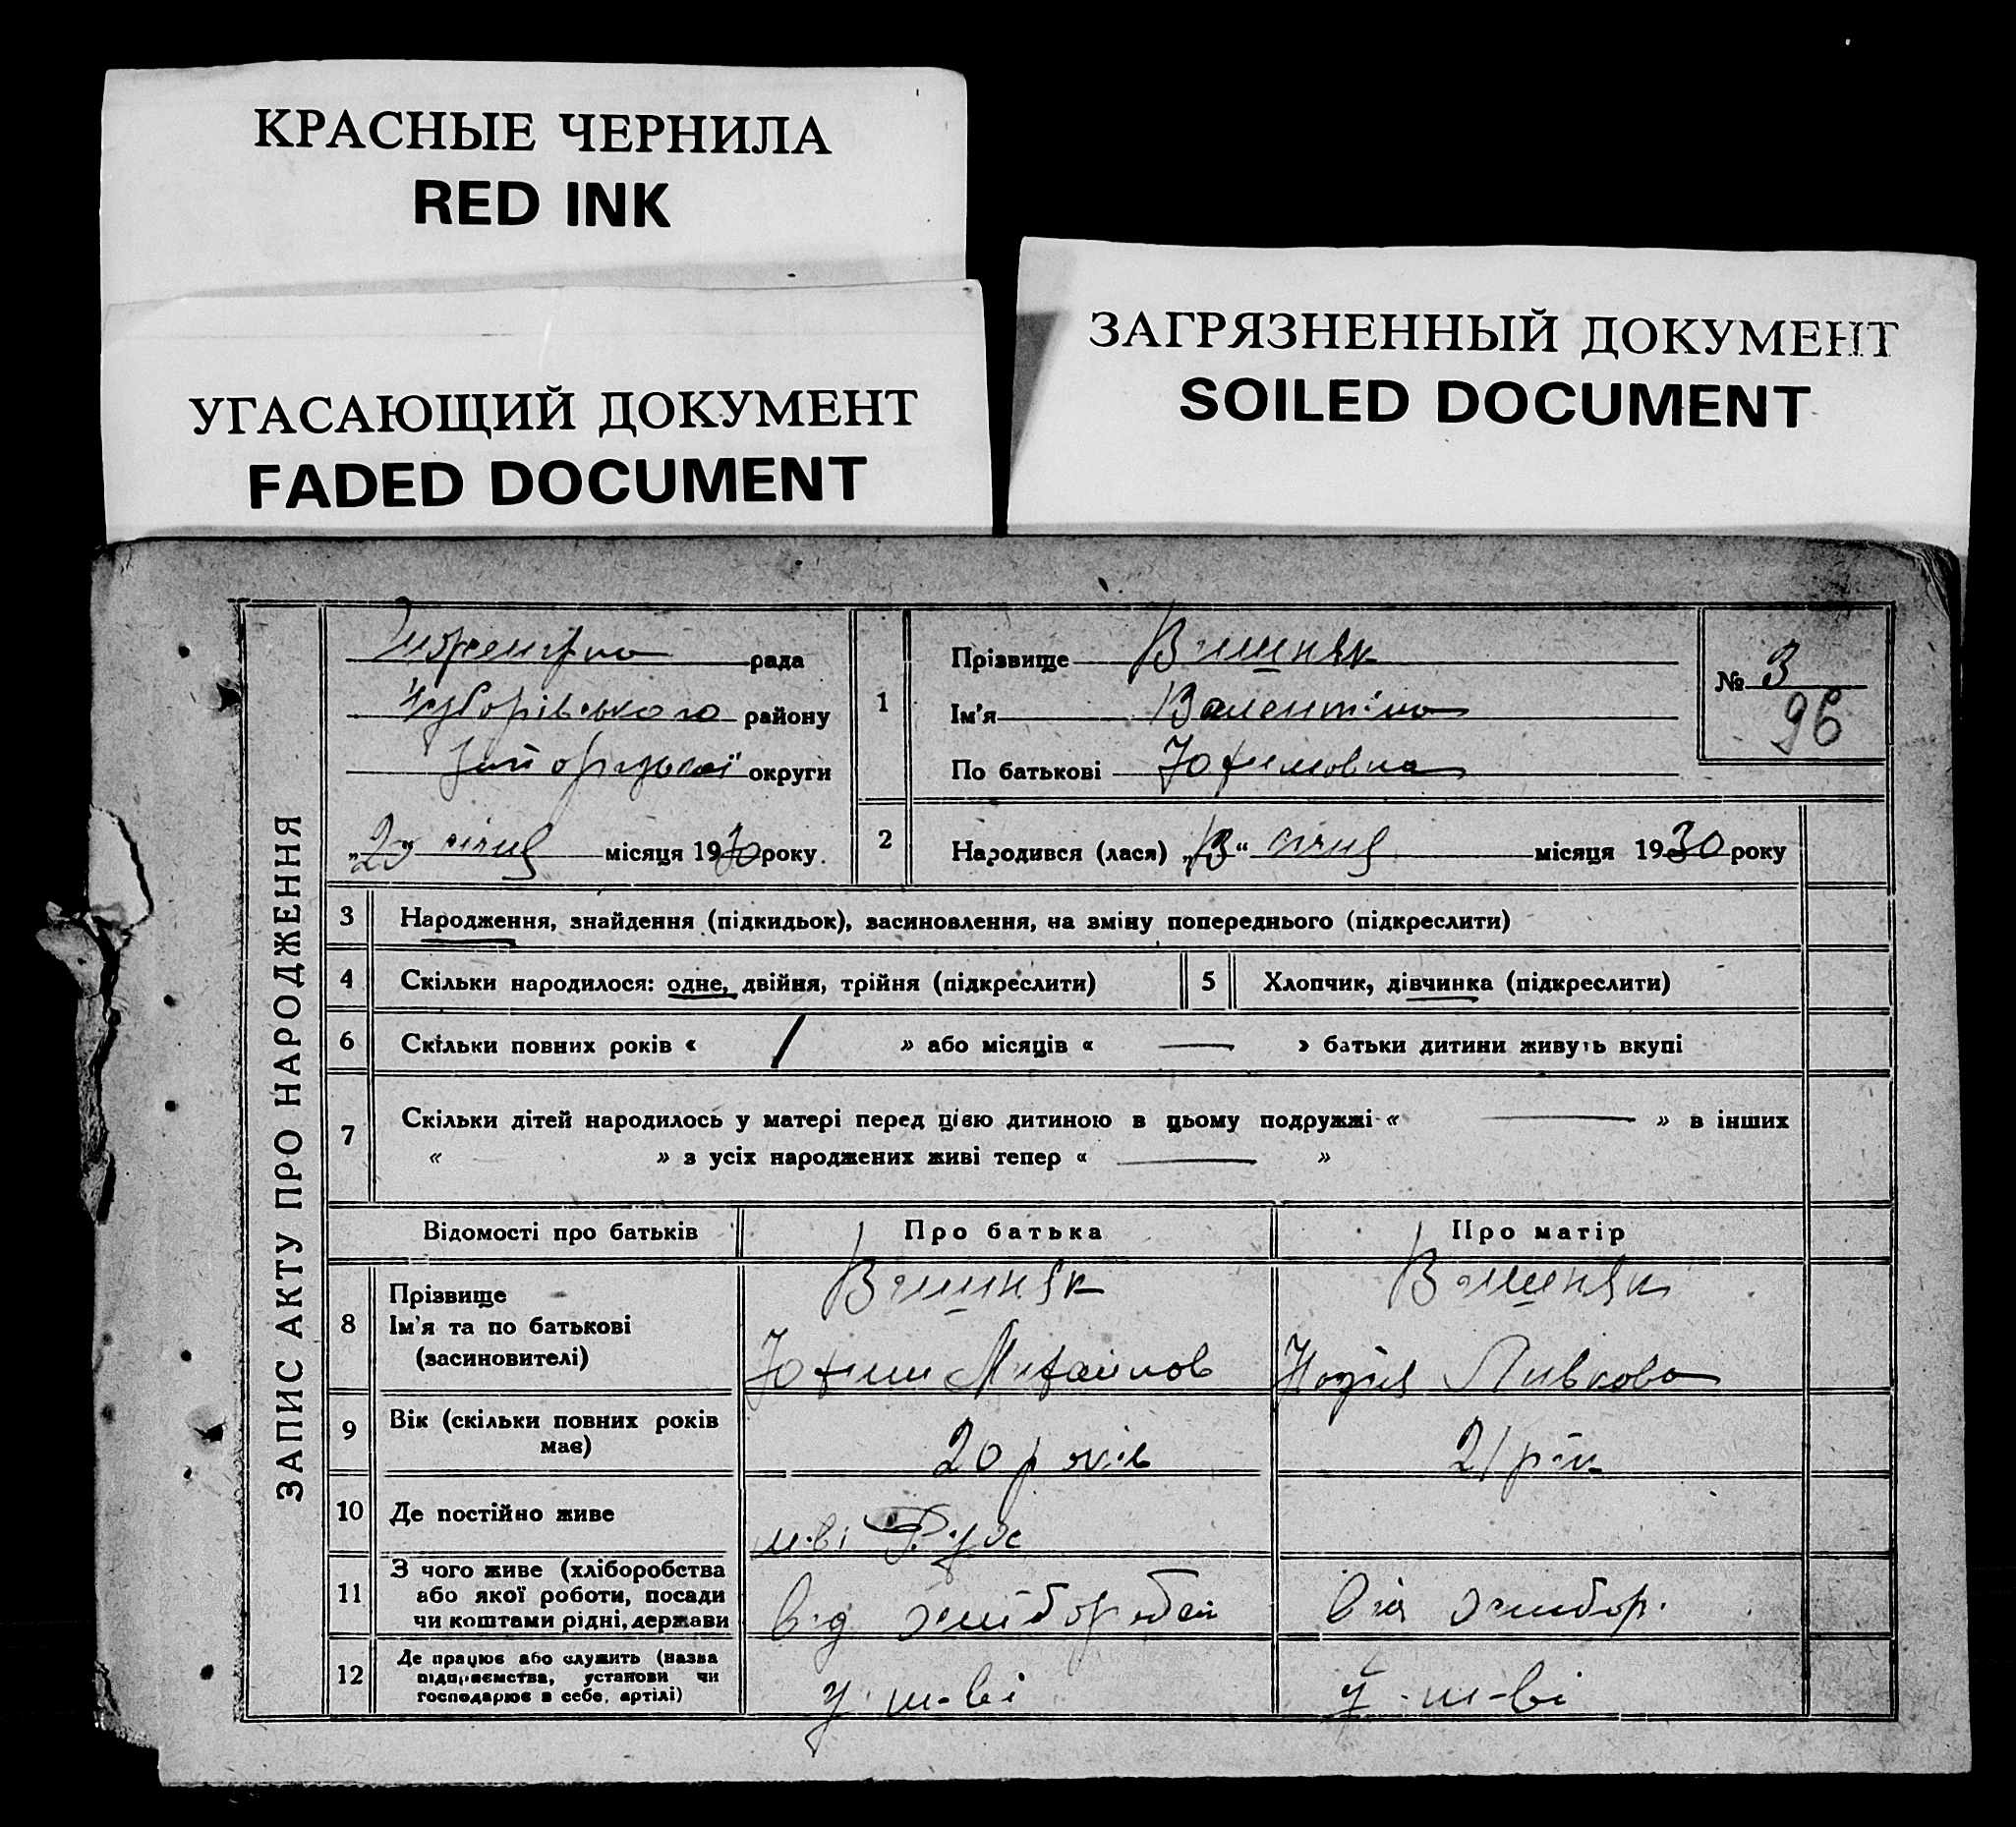 КРАСНЫЕ ЧЕРНИЛА
RED INK
УГАСАЮЩИЙ ДОКУМЕНТ
FADED DOCUMENT
ЗАГРЯЗНЕННЫЙ ДОКУМЕНТ
SOILED DOCUMENT
ЗАПИС АКТУ ПРО НАРОДЖЕННЯ
рада
району
округи
„20“ січня місяця 1930 року.
1
Прізвище Вишняк
Ім'я Валентина
По батькові Юхимовна
№ 3
96
2
Народився (лася) „13“ січня місяця 1930 року
3 Народження, знайдення (підкидьок), засиновлення, на зміну попереднього (підкреслити)
4 Скільки народилося: одне, двійня, трійня (підкреслити)
5 Хлопчик, дівчинка (підкреслити)
6 Скільки повних років « 1 » або місяців « — » батьки дитини живуть вкупі
7 Скільки дітей народилось у матері перед цією дитиною в цьому подружжі « — » в інших
« » з усіх народжених живі тепер « — »
Відомості про батьків Про батька Про матір
8 Прізвище Вишняк Вишняк
Ім'я та по батькові
(засиновителі) Юхим Михайлов Надія
9 Вік (скільки повних років
має) 20 років 21 рік
10 Де постійно живе
11 З чого живе (хліборобства
або якої роботи, посади
чи коштами рідні, держави від хлібороб
12 Де працює або служить (назва
підприємства, установи чи
господарює в себе, артілі) у